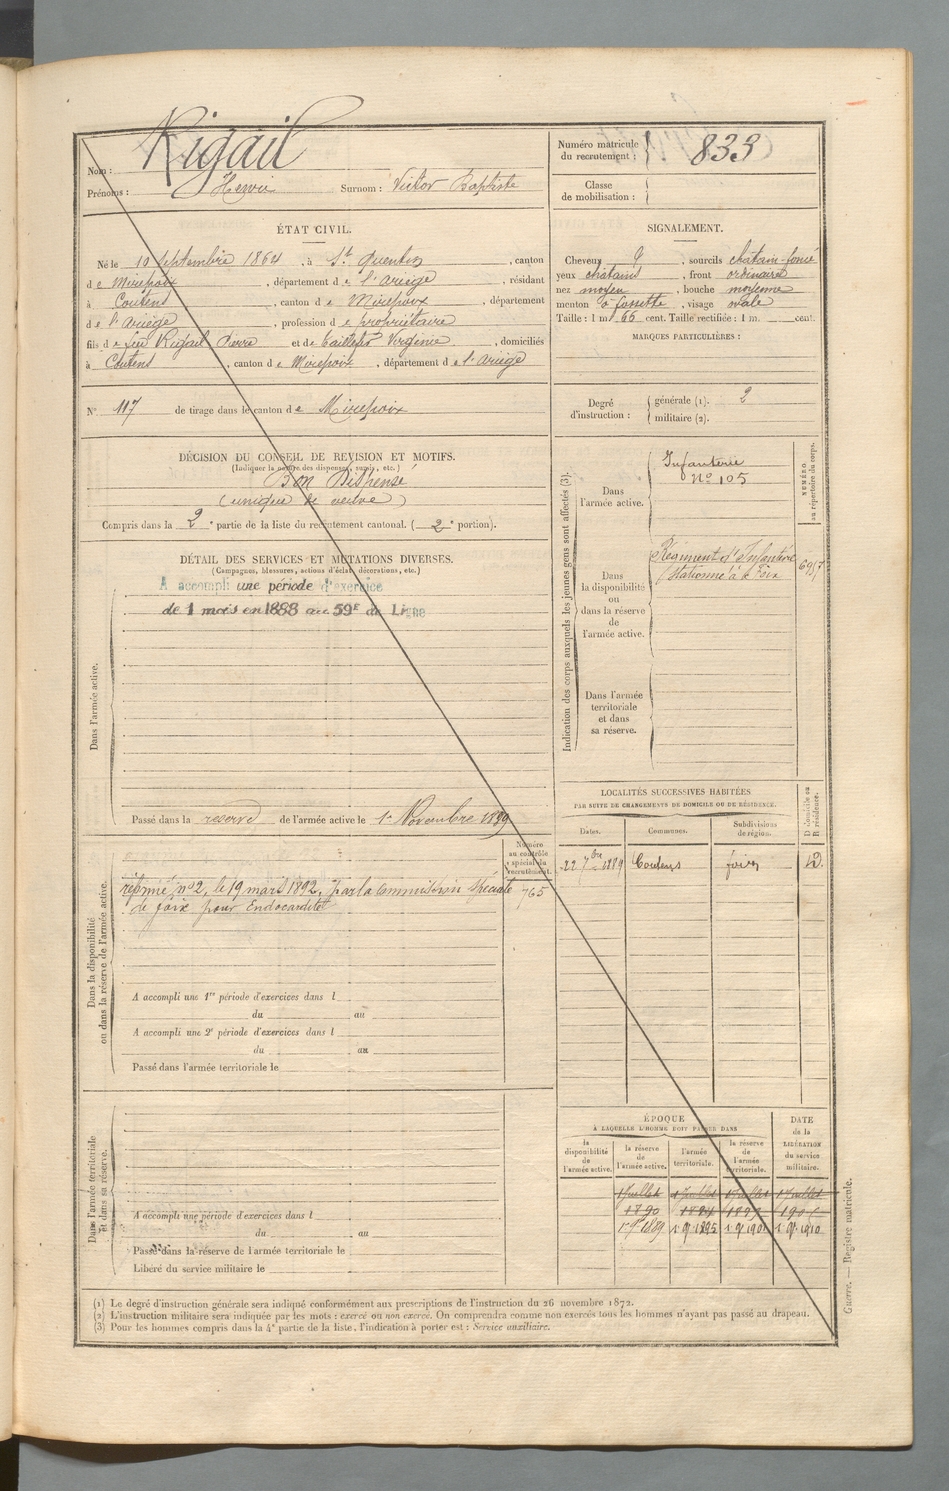 Nom : Rigail
Prénoms : Henri Surnom : Victor Baptiste
Numéro matricule du recrutement : 833
Classe de mobilisation :
ÉTAT CIVIL.
Né le 10 Septembre 1864, à St Quentin, canton
de Mirepoix, département de l'Ariège, résidant
à Coutens, canton de Mirepoix, département
de l'Ariège, profession de propriétaire
fils de feu Rigail et de Virginie, domiciliés
à Coutens, canton de Mirepoix, département de l'Ariège
N° 117 de tirage dans le canton de Mirepoix
SIGNALEMENT.
Cheveux, sourcils chatain-foncé
yeux chatains, front ordinaire
nez moyen, bouche moyenne
menton à fossette, visage ovale
Taille : 1 m. 66 cent. Taille rectifiée : 1 m. cent.
MARQUES PARTICULIÈRES :
Degré d'instruction : générale (1). 2
militaire (2).
DÉCISION DU CONSEIL DE REVISION ET MOTIFS.
(Indiquer la nature des dispenses, sursis, etc.)
Bon Dispensé
(unique de veuve)
Compris dans la 2e partie de la liste du recrutement cantonal. (2e portion).
DÉTAIL DES SERVICES ET MUTATIONS DIVERSES.
(Campagnes, blessures, actions d'éclat, décorations, etc.)
A accompli une période d'exercice
de 1 mois en 1888 au 59E de Ligne
Dans l'armée active.
Passé dans la réserve de l'armée active le 1er Novembre 1889
Indication des corps auxquels les jeunes gens sont affectés (3).
NUMÉRO au répertoire du corps.
Dans l'armée active.
Infanterie
No 105
Dans la disponibilité ou dans la réserve de l'armée active.
Régiment d'Infanterie
Stationné à Foix
Dans l'armée territoriale et dans sa réserve.
LOCALITÉS SUCCESSIVES HABITÉES
PAR SUITE DE CHANGEMENTS DE DOMICILE OU DE RÉSIDENCE.
Dates. Communes. Subdivisions de région. D domicile ou R résidence.
22 7bre 1889 Coutens foix D
Numéro au contrôle spécial du recrutement.
765
Dans la disponibilité ou dans la réserve de l'armée active.
réformé n°2, le 19 mars 1892, par la commission spéciale
de foix pour Endocardite
A accompli une 1re période d'exercices dans l
du au
A accompli une 2e période d'exercices dans l
du au
Passé dans l'armée territoriale le
Dans l'armée territoriale et dans sa réserve.
A accompli une période d'exercices dans l
du au
Passé dans la réserve de l'armée territoriale le
Libéré du service militaire le
ÉPOQUE
À LAQUELLE L'HOMME DOIT PASSER DANS
la disponibilité de l'armée active.
la réserve de l'armée active.
l'armée territoriale.
la réserve de l'armée territoriale.
DATE de la LIBÉRATION du service militaire.
1 Juillet 1 Juillet 1 Juillet 1 Juillet
1890
1889 1895 1910
(1) Le degré d'instruction générale sera indiqué conformément aux prescriptions de l'instruction du 26 novembre 1872.
(2) L'instruction militaire sera indiquée par les mots : exercé ou non exercé. On comprendra comme non exercés tous les hommes n'ayant pas passé au drapeau.
(3) Pour les hommes compris dans la 4e partie de la liste, l'indication à porter est : Service auxiliaire.
Guerre. — Registre matricule.